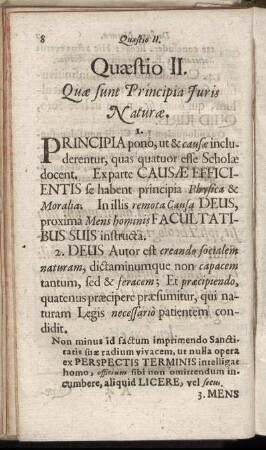 8 Quæstio II.
Quæstio II.
Quæ sunt Principia Juris
Naturæ.
1.
PRINCIPIA pono, ut & causæ inclu-
derentur, quas quatuor esse Scholæ
docent. Ex parte CAUSÆ EFFICI-
ENTIS se habent principia Physica &
Moralia. In illis remota Causa DEUS,
proxima Mens hominis FACULTATI-
BUS SUIS instructa.
2. DEUS Autor est creando socialem
naturam, dictaminumque non capacem
tantum, sed & feracem; Et præcipiendo,
quatenus præcipere præsumitur, qui na-
turam Legis necessariò patientem con-
didit.
Non minus id factum imprimendo Sancti-
tatis suæ radium vivacem, ut nulla opera
ex PERSPECTIS TERMINIS intelligat
homo, officium sibi non omittendum in-
cumbere, aliquid LICERE, vel secus.
3. MENS